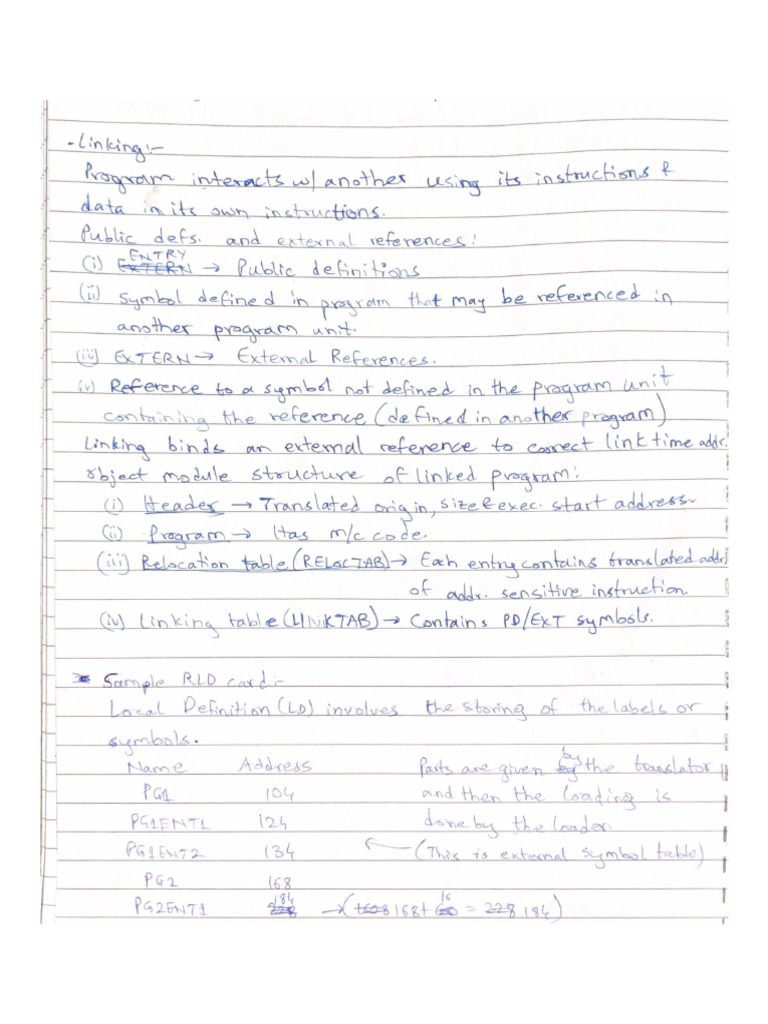 - Linking:-
Program interacts w/ another using its instructions &
data in its own instructions.
Public defs. and external references:
(i) EXTERN ENTRY → Public definitions
(ii) Symbol defined in program that may be referenced in
another program unit.
(iii) EXTERN → External References.
(iv) Reference to a symbol not defined in the program unit
containing the reference (defined in another program)
Linking binds an external reference to correct link time addr.
object module structure of linked program:
(i) Header → Translated origin, size & exec. start address.
(ii) Program → Has m/c code.
(iii) Relocation table (RELOCTAB) → Each entry contains translated addr)
of addr. sensitive instruction.
(iv) Linking table (LINKTAB) → Contains PD/EXT symbols.
Sample RLD card:-
Local Definition (LD) involves the storing of the labels or
symbols.
Name Address Parts are given by by the translator
PG1 104 and then the loading is
PG1ENT1 124 done by the loader
PG1ENT2 134 ← (This is external symbol table)
PG2 168
PG2ENT1 228 184 → (168 + 16 = 228 184)